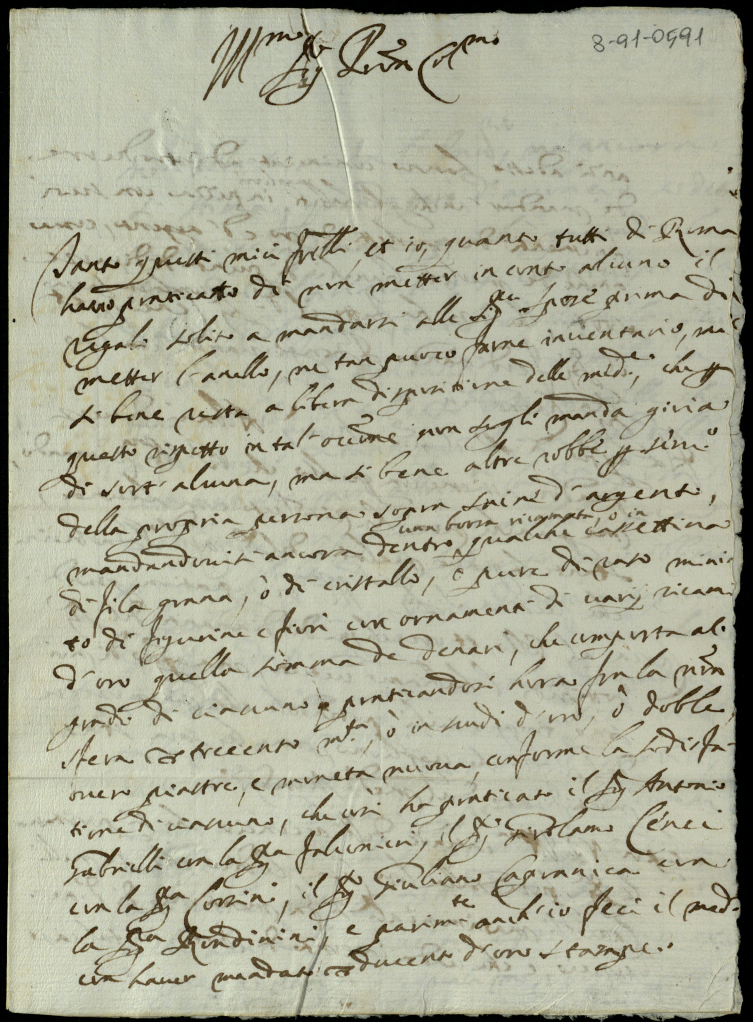 8-91-0591
Ill.mo Sig.r Pron Col.mo
Tanto questi miei frelli, et io, quanto tutti di Roma
hanno praticatto di non metter in conto alcuno il
regali solito a mandarsi alle Sig.re spose prima di
metter l'anello, ne tan puoco farne inventario, mà
si bene resta a libera dispositione delle med.e, che p
questo rispetto in tal occ.ne non segli manda gioia
di sort' alcuna, ma si bene altre robbe p serv.o
della propria persona sopra d'argento,
una borza ricamata, ò in
mandandovisi ancora dentro qualche cassettina
di fila grana, ò di cristallo, ò pure di raso minia
to di figurine e fiori con ornamenti di varij ricami
d'oro quella somma de denari, che comporta al
grado di ciascuno praticandosi hora fra la nra
sfera trecento m.ta, ò in scudi d'oro, ò doble,
overo piastre, e moneta nuova conforme la sodisfa
tione di ciascuno, che così ha praticato il Sig. Antonio
Gabrielli con la Sig.ra Falconieri, il Sig. Girolamo Cenci
con la Sig.ra Corsini, il Sig. Giuliano Capranica con
la Sig.ra Rondinini, e parim.te anch'io feci il med.o
con haver mandato ducento d'oro stampe.